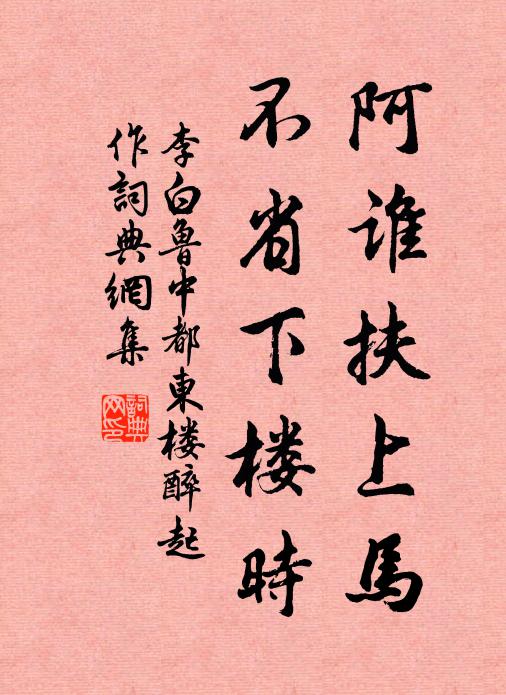 阿谁扶上馬
不省下楼時
李白魯中都東楼醉起
作詞典網集
詞典
网印